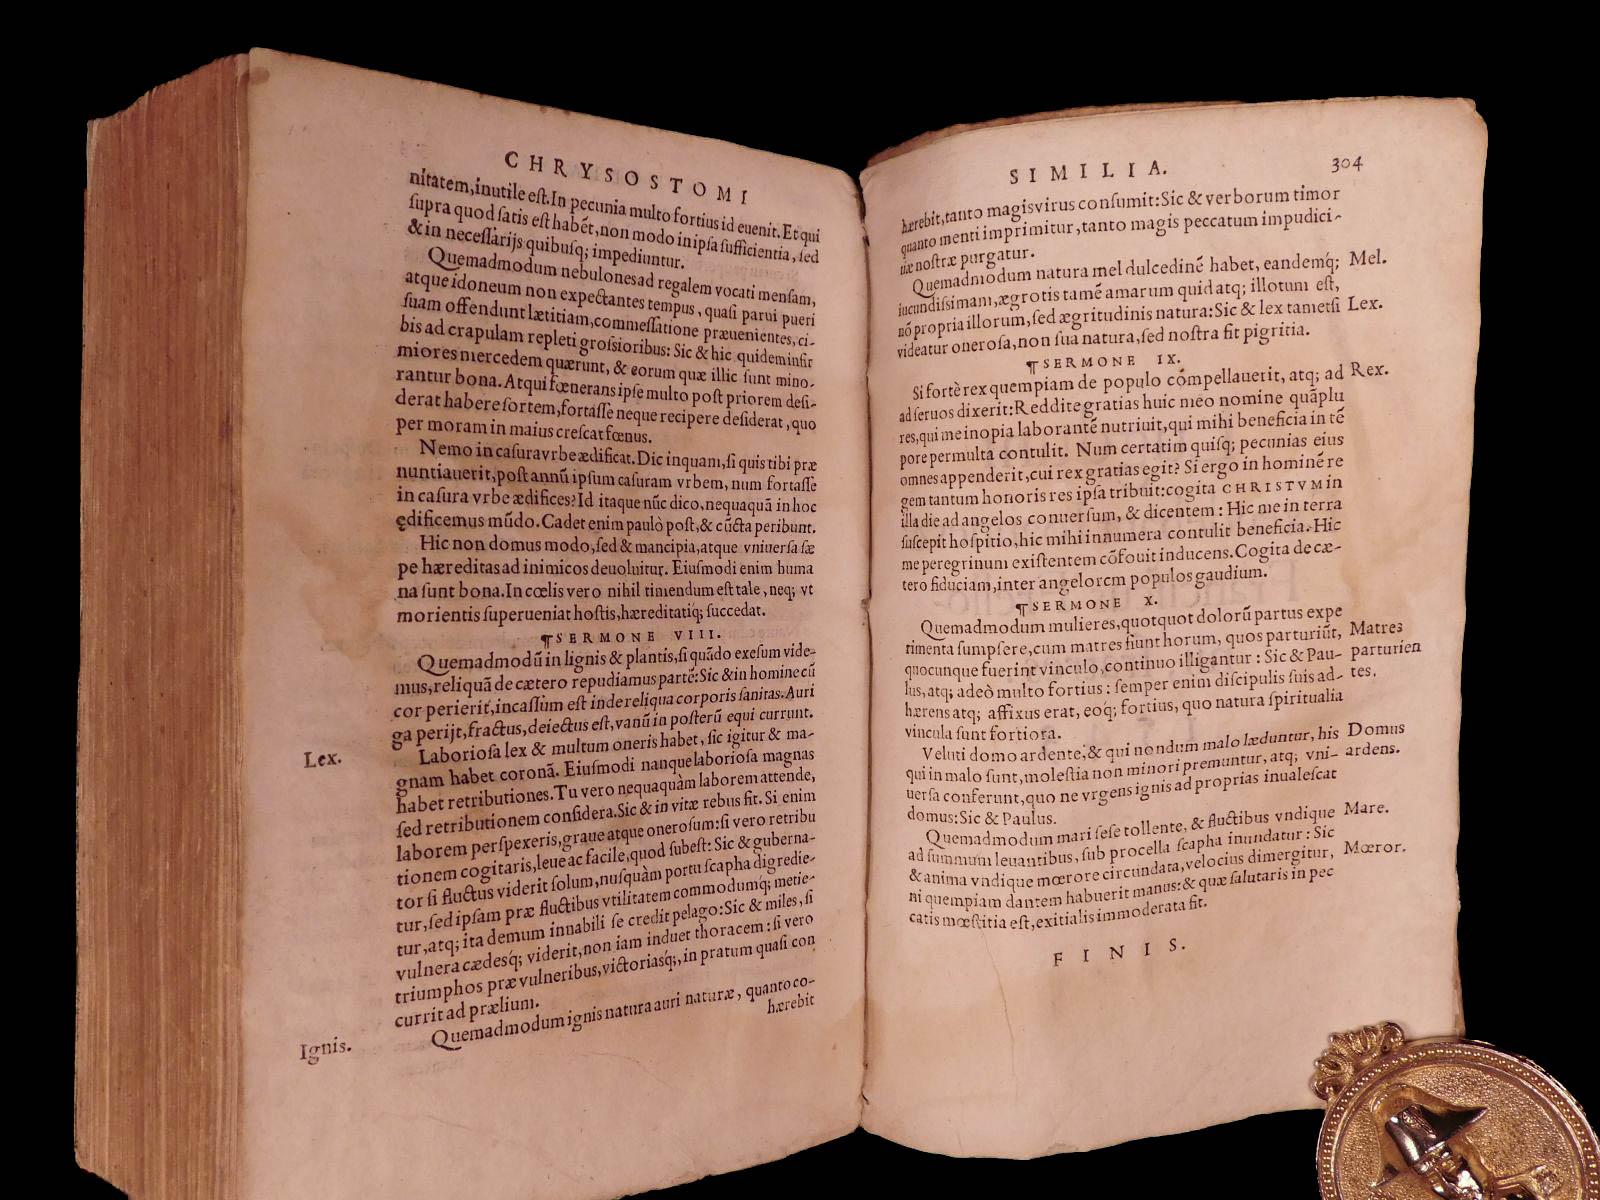 CHRYSOSTOMI
nitatem, inutile eſt. In pecunia multo fortius id euenit. Et qui
ſupra quod ſatis eſt habẽt, non modo in ipſa ſufficientia, ſed
& in neceſſarijs quibuſq; impediuntur.
Quemadmodum nebulones ad regalem vocati menſam,
atque idoneum non expectantes tempus, quaſi parui pueri
ſuam offendunt lætitiam, commeſſatione præuenientes, ci-
bis ad crapulam repleti groſsioribus: Sic & hic quidem infir
miores mercedem quærunt, & eorum quæ illic ſunt mino-
rantur bona. Atqui fœnerans ipſe multo poſt priorem deſi-
derat habere ſortem, fortaſſe neque recipere deſiderat, quo
per moram in maius creſcat fœnus.
Nemo in caſura vrbe ædificat. Dic inquam, ſi quis tibi præ
nuntiauerit, poſt annũ ipſum caſuram vrbem, num fortaſſe
in caſura vrbe ædifices? Id itaque nũc dico, nequaquã in hoc
ędificemus mũdo. Cadet enim paulò poſt, & cũcta peribunt.
Hic non domus modo, ſed & mancipia, atque vniuerſa ſæ
pe hæreditas ad inimicos deuoluitur. Eiuſmodi enim huma
na ſunt bona. In cœlis vero nihil timendum eſt tale, neq; vt
morientis ſuperueniat hoſtis, hæreditatiq; ſuccedat.
¶SERMONE VIII.
Quemadmodũ in lignis & plantis, ſi quãdo exeſum vide-
mus, reliquã de cætero repudiamus partẽ: Sic & in homine cũ
cor perierit, incaſſum eſt inde reliqua corporis ſanitas. Auri
ga perijt, fractus, deiectus eſt, vanũ in poſterũ equi currunt.
Lex. Laborioſa lex & multum oneris habet, ſic igitur & ma-
gnam habet coronã. Eiuſmodi nanque laborioſa magnas
habet retributiones. Tu vero nequaquàm laborem attende,
ſed retributionem conſidera. Sic & in vitæ rebus fit. Si enim
laborem perſpexeris, graue atque oneroſum: ſi vero retribu
tionem cogitaris, leue ac facile, quod ſubeſt: Sic & guberna-
tor ſi fluctus viderit ſolum, nuſquàm portu ſcapha digredie-
tur, ſed ipſam præ fluctibus vtilitatem commodumq; metie-
tur, atq; ita demum innabili ſe credit pelago: Sic & miles, ſi
vulnera cædesq; viderit, non iam induet thoracem: ſi vero
triumphos præ vulneribus, victoriasq;, in pratum quaſi con
currit ad prælium.
Ignis. Quemadmodum ignis natura auri naturæ, quanto co-
hærebit
SIMILIA. 304
hærebit, tanto magis virus conſumit: Sic & verborum timor
quanto menti imprimitur, tanto magis peccatum impudici-
tiæ noſtræ purgatur.
Quemadmodum natura mel dulcedinẽ habet, eandemq; Mel.
iucundiſsimam, ægrotis tamẽ amarum quid atq; illotum eſt,
nõ propria illorum, ſed ægritudinis natura: Sic & lex tametſi Lex.
videatur oneroſa, non ſua natura, ſed noſtra fit pigritia.
¶SERMONE IX.
Si fortè rex quempiam de populo cõmpellauerit, atq; ad Rex.
ad ſeruos dixerit: Reddite gratias huic meo nomine quãplu
res, qui me inopia laborantẽ nutriuit, qui mihi beneficia in tẽ
pore permulta contulit. Num certatim quiſq; pecunias eius
omnes appenderit, cui rex gratias egit? Si ergo in hominẽ re
gem tantum honoris res ipſa tribuit: cogita CHRISTVM in
illa die ad angelos conuerſum, & dicentem: Hic me in terra
ſuſcepit hoſpitio, hic mihi innumera contulit beneficia. Hic
me peregrinum exiſtentem cõfouit inducens. Cogita de cæ-
tero fiduciam, inter angelorem populos gaudium.
¶SERMONE X.
Quemadmodum mulieres, quotquot dolorũ partus expe
rimenta ſumpſere, cum matres fiunt horum, quos parturiũt, Matres
quocunque fuerint vinculo, continuo illigantur: Sic & Pau- parturien
lus, atq; adeò multo fortius: ſemper enim diſcipulis ſuis ad- tes.
hærens atq; affixus erat, eoq; fortius, quo natura ſpiritualia
vincula ſunt fortiora.
Veluti domo ardente, & qui nondum malo læduntur, his Domus
qui in malo ſunt, moleſtia non minori premuntur, atq; vni- ardens.
uerſa conferunt, quo ne vrgens ignis ad proprias inualeſcat
domus: Sic & Paulus.
Quemadmodum mari ſeſe tollente, & fluctibus vndique Mare.
ad ſummum leuantibus, ſub procella ſcapha inundatur: Sic
& anima vndique mœrore circundata, velocius dimergitur, Mœror.
ni quempiam dantem habuerit manus: & quæ ſalutaris in pec
catis mœſtitia eſt, exitialis immoderata fit.
FINIS.